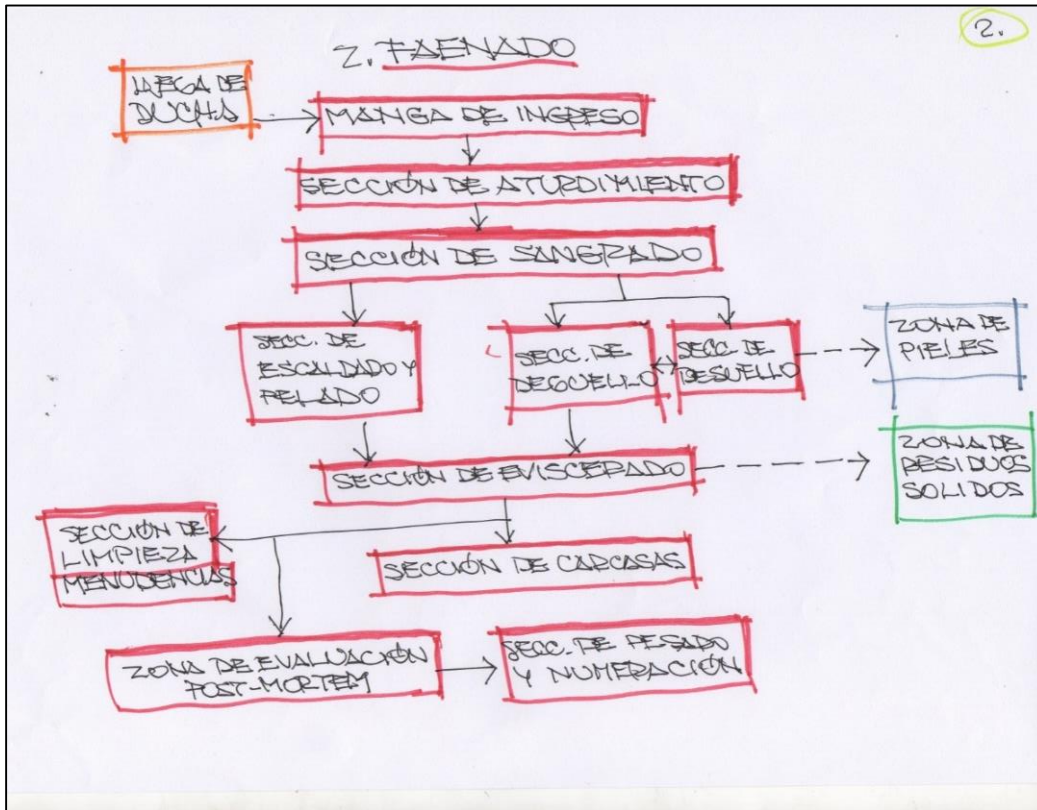 2.
2. FAENADO
LLEGA DE
DUCHA
MANGA DE INGRESO
SECCIÓN DE ATURDIMIENTO
SECCIÓN DE SANGRADO
SECC. DE
ESCALDADO Y
PELADO
SECC. DE
DEGUELLO
SECC. DE
DESUELLO
ZONA DE
PIELES
SECCIÓN DE EVISCERADO
ZONA DE
RESIDUOS
SOLIDOS
SECCIÓN DE
LIMPIEZA
MENUDENCIAS
SECCIÓN DE CARCASAS
ZONA DE EVALUACIÓN
POST-MORTEM
SECC. DE PESADO
Y NUMERACIÓN